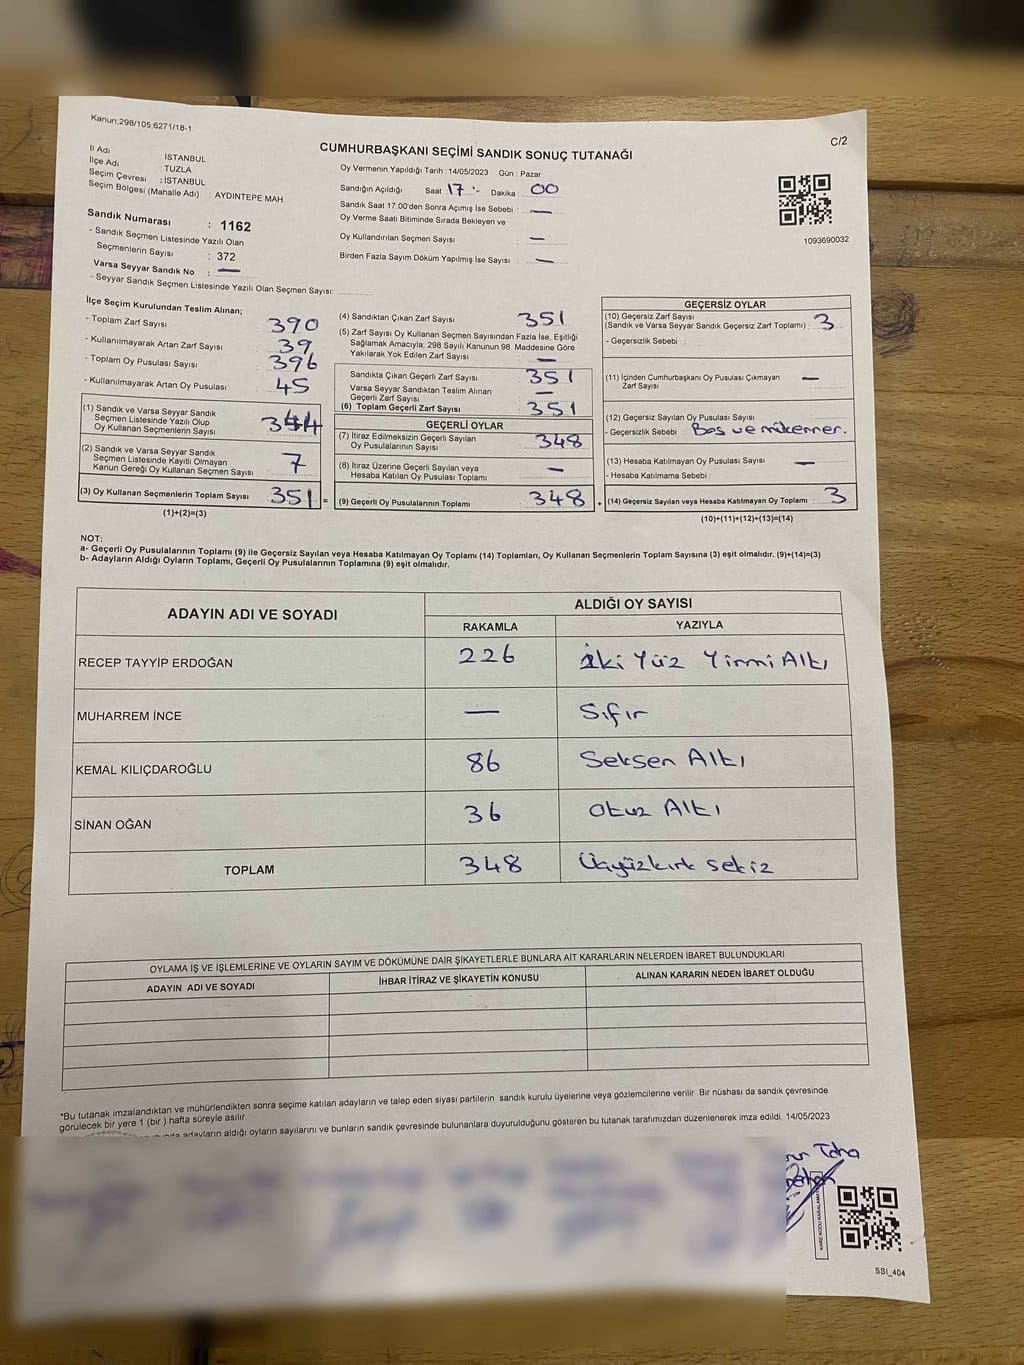 Kanun;298/105,6271/18-1
C/2
CUMHURBAŞKANI SEÇİMİ SANDIK SONUÇ TUTANAĞI
İl Adı İSTANBUL
İlçe Adı TUZLA
Seçim Çevresi : İSTANBUL
Seçim Bölgesi (Mahalle Adı) : AYDINTEPE MAH.
Oy Vermenin Yapıldığı Tarih :14/05/2023 Gün : Pazar
Sandığın Açıldığı Saat 17 :- Dakika : 00
Sandık Saat 17.00'den Sonra Açılmış İse Sebebi : —
Oy Verme Saati Bitiminde Sırada Bekleyen ve
Oy Kullandırılan Seçmen Sayısı : —
Birden Fazla Sayım Döküm Yapılmış İse Sayısı : —
1093690032
Sandık Numarası : 1162
- Sandık Seçmen Listesinde Yazılı Olan
Seçmenlerin Sayısı : 372
Varsa Seyyar Sandık No : —
- Seyyar Sandık Seçmen Listesinde Yazılı Olan Seçmen Sayısı:
İlçe Seçim Kurulundan Teslim Alınan;
- Toplam Zarf Sayısı 390
- Kullanılmayarak Artan Zarf Sayısı 39
- Toplam Oy Pusulası Sayısı 396
- Kullanılmayarak Artan Oy Pusulası 45
(1) Sandık ve Varsa Seyyar Sandık
Seçmen Listesinde Yazılı Olup
Oy Kullanan Seçmenlerin Sayısı 344
(2) Sandık ve Varsa Seyyar Sandık
Seçmen Listesinde Kayıtlı Olmayan
Kanun Gereği Oy Kullanan Seçmen Sayısı 7
(3) Oy Kullanan Seçmenlerin Toplam Sayısı 351 =
(1)+(2)=(3)
(4) Sandıktan Çıkan Zarf Sayısı 351
(5) Zarf Sayısı Oy Kullanan Seçmen Sayısından Fazla İse, Eşitliği
Sağlamak Amacıyla; 298 Sayılı Kanunun 98. Maddesine Göre
Yakılarak Yok Edilen Zarf Sayısı —
Sandıkta Çıkan Geçerli Zarf Sayısı 351
Varsa Seyyar Sandıktan Teslim Alınan
Geçerli Zarf Sayısı —
(6) Toplam Geçerli Zarf Sayısı 351
GEÇERLİ OYLAR
(7) İtiraz Edilmeksizin Geçerli Sayılan
Oy Pusulalarının Sayısı 348
(8) İtiraz Üzerine Geçerli Sayılan veya
Hesaba Katılan Oy Pusulası Toplamı —
(9) Geçerli Oy Pusulalarının Toplamı 348 +
GEÇERSİZ OYLAR
(10) Geçersiz Zarf Sayısı
(Sandık ve Varsa Seyyar Sandık Geçersiz Zarf Toplamı) : 3
- Geçersizlik Sebebi :
(11) İçinden Cumhurbaşkanı Oy Pusulası Çıkmayan
Zarf Sayısı —
(12) Geçersiz Sayılan Oy Pusulası Sayısı :
- Geçersizlik Sebebi : Boş ve mükerrer.
(13) Hesaba Katılmayan Oy Pusulası Sayısı —
- Hesaba Katılmama Sebebi :
(14) Geçersiz Sayılan veya Hesaba Katılmayan Oy Toplamı : 3
(10)+(11)+(12)+(13)=(14)
NOT:
a- Geçerli Oy Pusulalarının Toplamı (9) ile Geçersiz Sayılan veya Hesaba Katılmayan Oy Toplamı (14) Toplamları, Oy Kullanan Seçmenlerin Toplam Sayısına (3) eşit olmalıdır. (9)+(14)=(3)
b- Adayların Aldığı Oyların Toplamı, Geçerli Oy Pusulalarının Toplamına (9) eşit olmalıdır.
ADAYIN ADI VE SOYADI
ALDIĞI OY SAYISI
RAKAMLA YAZIYLA
RECEP TAYYİP ERDOĞAN 226 İki Yüz Yirmi Altı
MUHARREM İNCE — Sıfır
KEMAL KILIÇDAROĞLU 86 Seksen Altı
SİNAN OĞAN 36 Otuz Altı
TOPLAM 348 Üçyüzkırk sekiz
OYLAMA İŞ VE İŞLEMLERİNE VE OYLARIN SAYIM VE DÖKÜMÜNE DAİR ŞİKAYETLERLE BUNLARA AİT KARARLARIN NELERDEN İBARET BULUNDUKLARI
ADAYIN ADI VE SOYADI İHBAR İTİRAZ VE ŞİKAYETİN KONUSU ALINAN KARARIN NEDEN İBARET OLDUĞU
*Bu tutanak imzalandıktan ve mühürlendikten sonra seçime katılan adayların ve talep eden siyasi partilerin sandık kurulu üyelerine veya gözlemcilerine verilir. Bir nüshası da sandık çevresinde
görülecek bir yere 1 (bir) hafta süreyle asılır.
adayların aldığı oyların sayılarını ve bunların sandık çevresinde bulunanlara duyurulduğunu gösteren bu tutanak tarafımızdan düzenlenerek imza edildi. 14/05/2023
Taha
SSİ_404